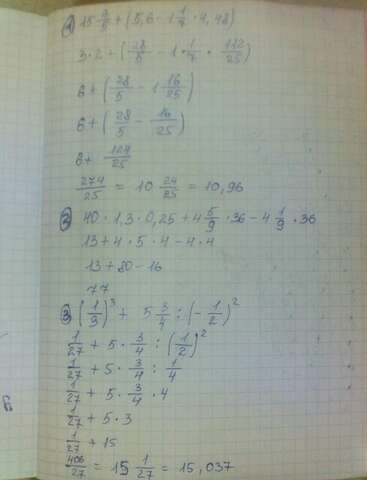 ① 15 · 2/5 + (5,6 - 1 1/7 · 4,48)
3 · 2 + (28/5 - 1 · 1/7 · 112/25)
6 + (28/5 - 1 16/25)
6 + (28/5 - 16/25)
6 + 124/25
274/25 = 10 24/25 = 10,96
② 40 · 1,3 · 0,25 + 4 5/9 · 36 - 4 1/9 · 36
13 + 4 · 5 · 4 - 4 · 4
13 + 80 - 16
77
③ (1/3)³ + 5 3/4 : (-1/2)²
1/27 + 5 · 3/4 : (1/2)²
1/27 + 5 · 3/4 : 1/4
1/27 + 5 · 3/4 · 4
1/27 + 5 · 3
1/27 + 15
406/27 = 15 1/27 = 15,037